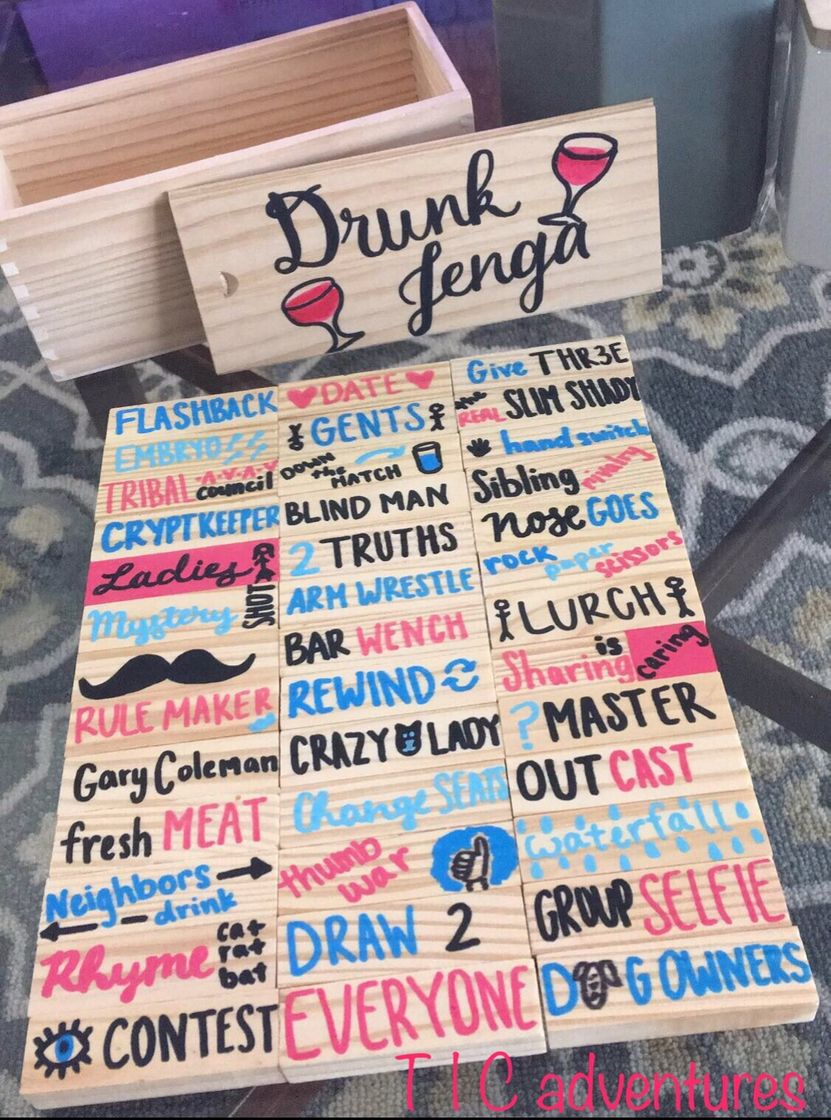 Drunk
Jenga
FLASHBACK
EMBRYO
TRIBAL council
CRYPTKEEPER
Ladies
Mystery SHOT
RULE MAKER
Gary Coleman
fresh MEAT
Neighbors
drink
Rhyme cat
rat
bat
CONTEST
DATE
GENTS
DOWN the HATCH
BLIND MAN
2 TRUTHS
ARM WRESTLE
BAR WENCH
REWIND
CRAZY LADY
Change SEATS
thumb
war
DRAW 2
EVERYONE
Give THR3E
REAL SLIM SHADY
hand switch
Sibling rivalry
nose GOES
rock paper scissors
LURCH
Sharing is caring
? MASTER
OUTCAST
waterfall
GROUP SELFIE
DOG OWNERS
T I C adventures